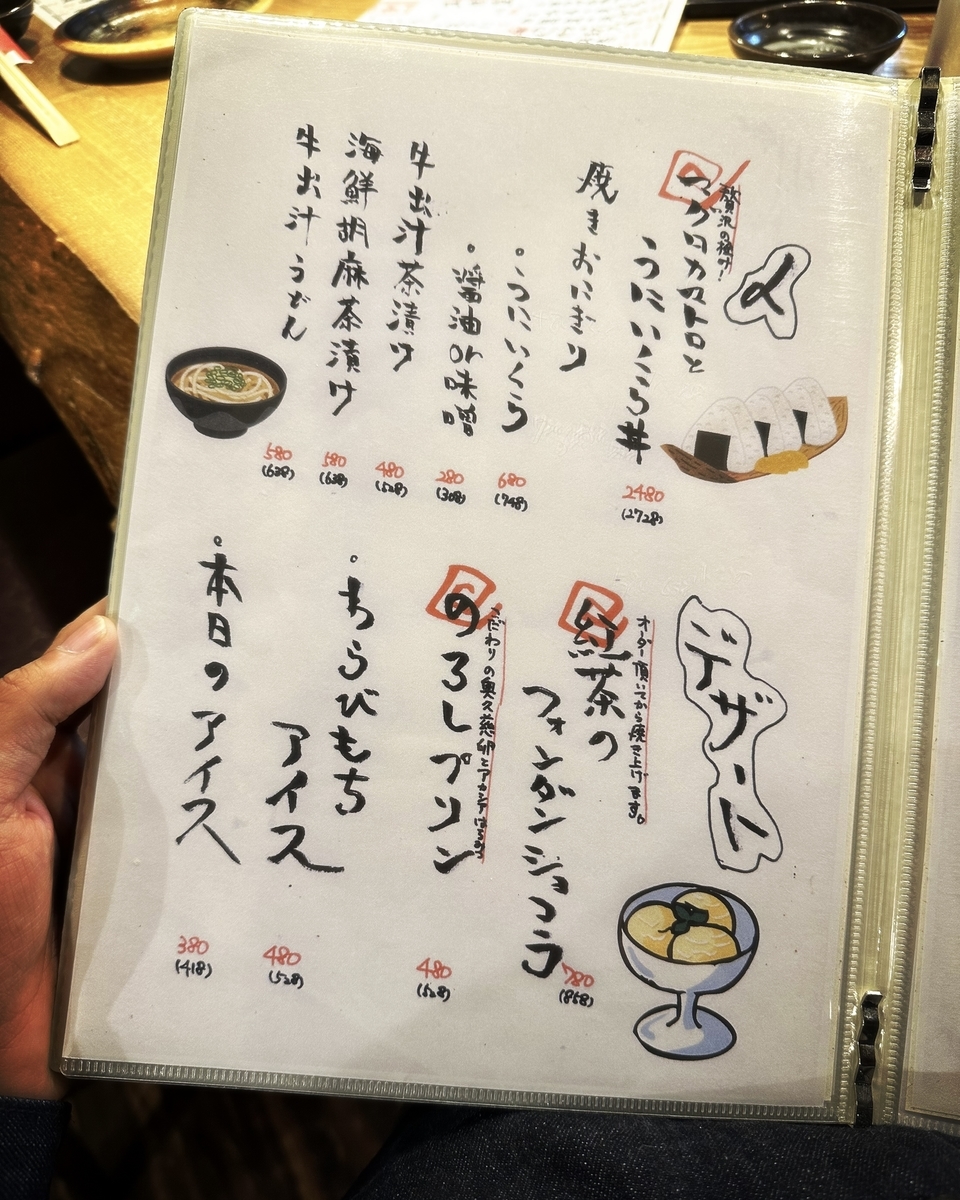 〆
贅沢の極み!
マグロカマトロと
うにいくら丼
2480
(2728)
焼きおにぎり
・うにいくら
680
(748)
・醤油or味噌
280
(308)
牛出汁茶漬け
480
(528)
海鮮胡麻茶漬け
580
(638)
牛出汁うどん
580
(638)
デザート
オーダー頂いてから焼き上げます。
紅茶の
フォンダンショコラ
780
(858)
こだわりの奥久慈卵とアカシアはちみつ
のろしプリン
480
(528)
わらびもち
アイス
480
(528)
本日のアイス
380
(418)